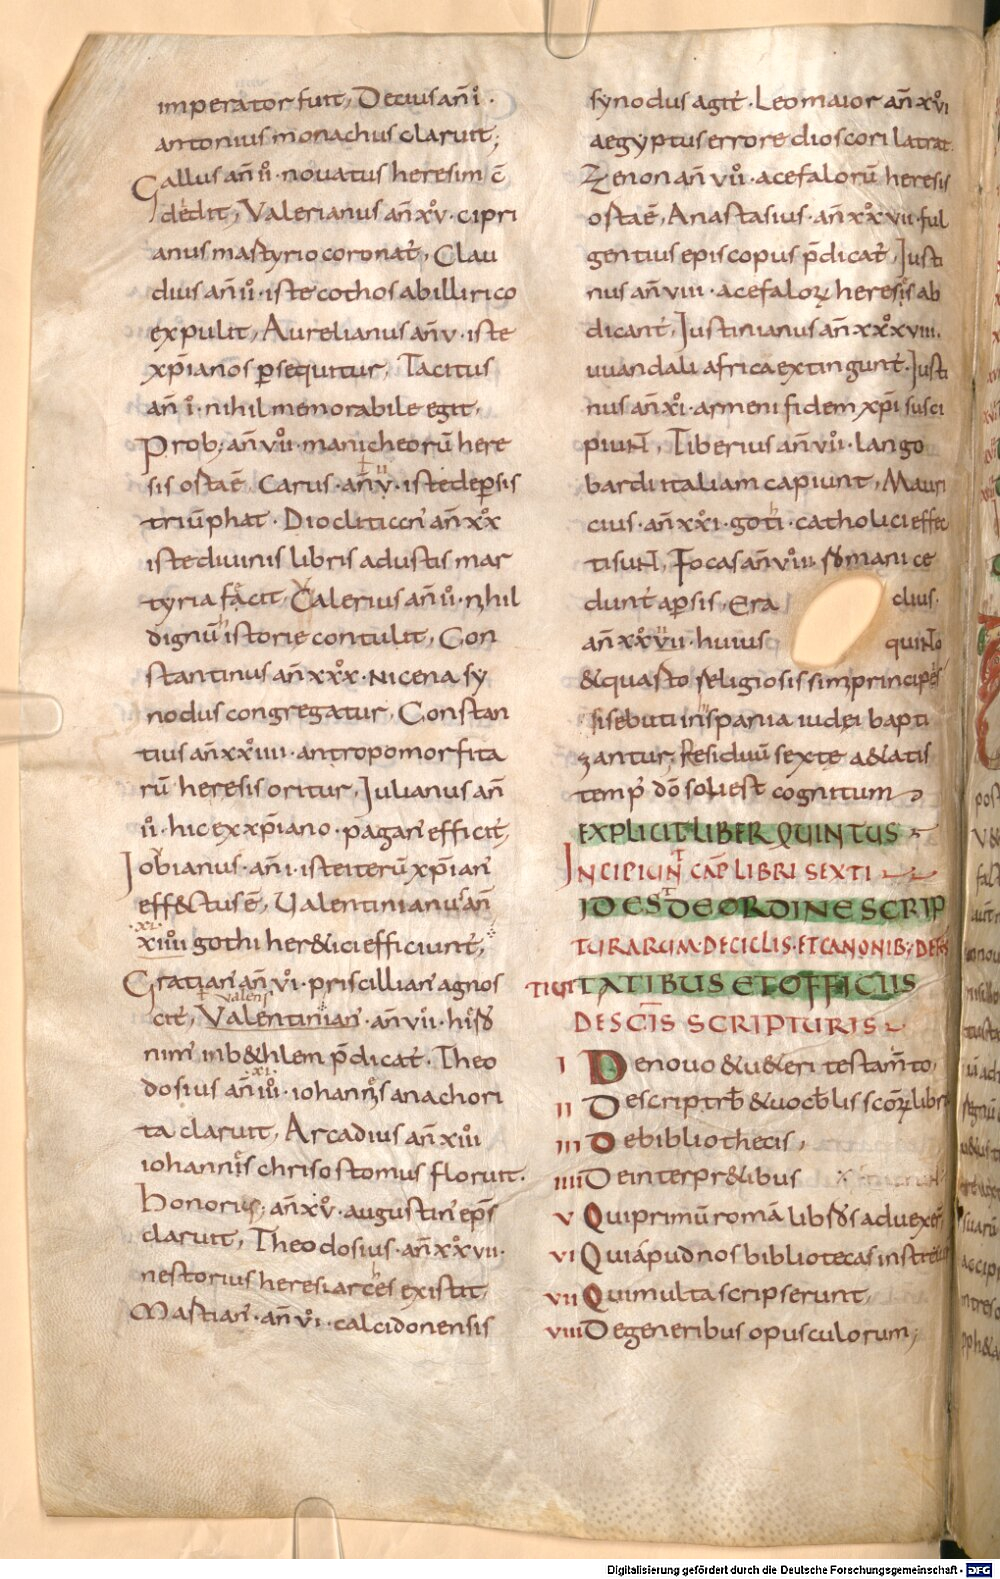 imperator fuit, Decius añ i·
antonius monachus claruit;
Gallus añ ii· novatus heresim c̄
didit, Valerianus añ xv· cipri
anus mastyrio coronat̄, Clau
dius añ ii· iste cothos ab illirico
expulit, Aurelianus añ v· iste
xp̄ianos p̄sequitur, Tacitus
añ i· nihil memorabile egit,
Prob; añ vii· manicheorū here
sis ostaē, Carus· añ v· iste de p̄sis
triūphat· Diocliticen̄ añ xx
iste divinis libris adustis mar
tyria facit, Galerius añ ii· nihil
dignū istorie contulit, Con
stantinus añ xxx· Nicena sy
nodus congregatur, Constan
tius añ xxiiii· antropomorfita
rū heresis oritur, Iulianus añ
ii· hic ex xp̄iano· pagan̄ efficit̄,
Iobianus· añ i· iste iterū xp̄ian̄
eff&ctus ē, Valentinianus añ
xiiii gothi her&ici efficiunt,
Gratian̄ añ vi· priscillian̄ agnos
cit̄, Valentinian̄· añ vii· hiero
nim̄ in b&hlem p̄dicat̄· Theo
dosius añ iii· iohannes anachori
ta claruit, Arcadius añ xiii
iohannis chrisostomus floruit·
honorius; añ xv· augustin̄ ep̄s
claruit, Theodosius· añ xxvii·
nestorius heresiarces existit,
Mastian̄· añ vi· calcidonensis
synodus agit̄· Leo maior añ xvi
aegyptus errore dioscori latrat·
Zenon añ vii· acefalorū heresis
ostaē, Anastasius· añ xxvii· ful
gentius episcopus p̄dicat̄, Iusti
nus añ viii· acefaloꝝ heresis ab
dicant̄, Iustinianus añ xxxviii·
uuandali africa extingunt̄· Iusti
nus añ xi· armeni fidem xp̄i susci
piunt, Tiberius añ vii· lango
bardi italiam capiunt, Mauri
cius· añ xxi· goti· catholici effec
ti sunt, Focas añ viii· romani ce
dunt̄ a p̄sis, Era clius·
añ xxvii· huius quinto
& quasto religiosissim principes
sisebuti in spania iudei bapti
zantur; Residuū sexte a&atis
temp̄ dō soli est cognitum
EXPLICIT LIBER QUINTUS
INCIPIUNT CAP̄ LIBRI SEXTI
ID EST DE ORDINE SCRIP
TURARUM· DE CICLIS· ET CANONIB; DE FES
TIUITATIBUS ET OFFICIIS
DE SC̄IS SCRIPTURIS
I De novo & u&eri testam̄to,
II De scriptrb̄ & vocb̄lis sc̄oꝝ libr
III De bibliothecis,
IIII De interpr&ibus
V Qui primū romā libros advexer̄
VI Qui apud nos bibliotecas instituit
VII Qui multa scripserunt,
VIII De generibus opusculorum,
Digitalisierung gefördert durch die Deutsche Forschungsgemeinschaft - DFG